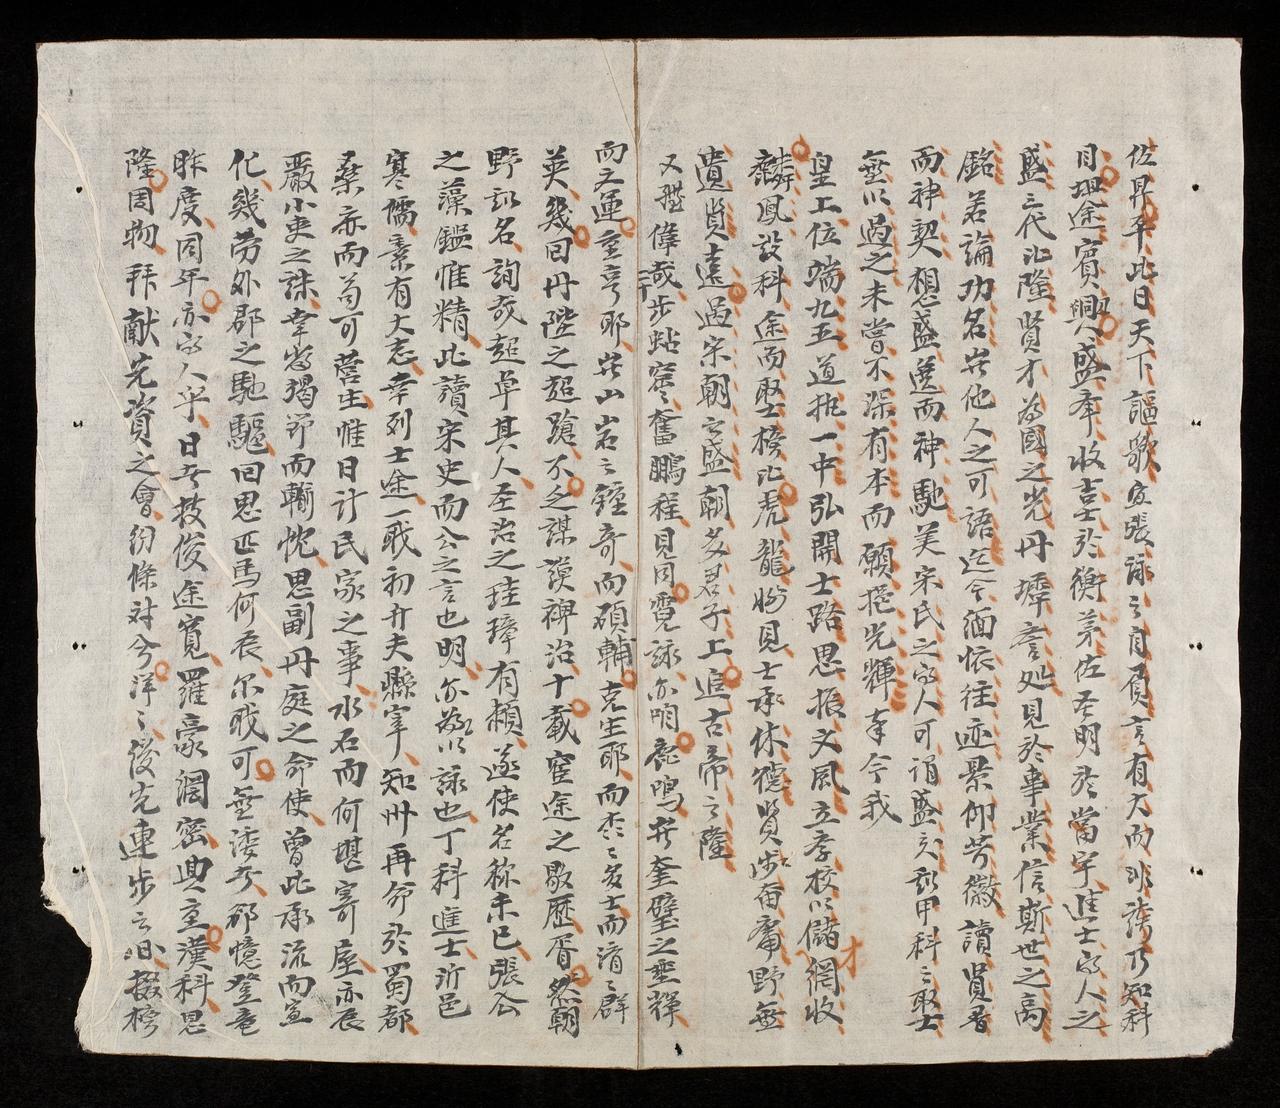 佐昇平此日天下謳歌宜張詠之自負言有大而非誇乃知科
目坦途賓興盛年收吉士於衡茅佐聖明於當宇進士的人之
盛三代比隆賢才為國之光丹墀喜処見於事業信斯世之高
銘若論功名豈他人之可語迄今緬懷往迹景仰芳徽讀賢書
而神契想盛選而神馳美宋民之的人可謂盛矣試甲科之取士
無以過之未嘗不深有本而願挹光輝幸今我
皇上位端九五道執一中弘開士路思振文風立孝校以儲才網收
麟鳳設科途而聖榜比虎龍盼見士承休德賢步奋庸野無
遺賢遠過宋朝之盛朝多君子上追古帝之隆
又歷偉哉步蛄窟奮鵬程見同霓詠亦咱鹿鳴共奎璧之垂輝
而之運重亨耶岂山岩之鍾奇而碩輔克生耶而不之多士而清之群
英幾回丹陛之超蹌不乏謀謨裨治十載窗途之歇歷胥然朝
野試名詢哉超卓其人圣治之珪璋有頼遂使名称未已張公
之藻鑑惟精此讀宋史而公之言也明亦敬以詠也丁科進士沂邑
寒儒素有大志幸列士途一戢初升夫縣宰知州再命於蜀都
桑亦而苟可营生惟日計民家之事水石而何堪寄屋亦辰
嚴小吏之誅幸當揭節而輸忱思副丹庭之命使曾此承流而宣
化幾勞外郡之馳驅回思匹馬何辰尔戢可無淒兮郤憶登竜
昨度同年亦的人乎日共技俊途寬羅豪網密典重漢科思
隆周物拜献先資之會紛條对兮洋之後先連步之日掇榜